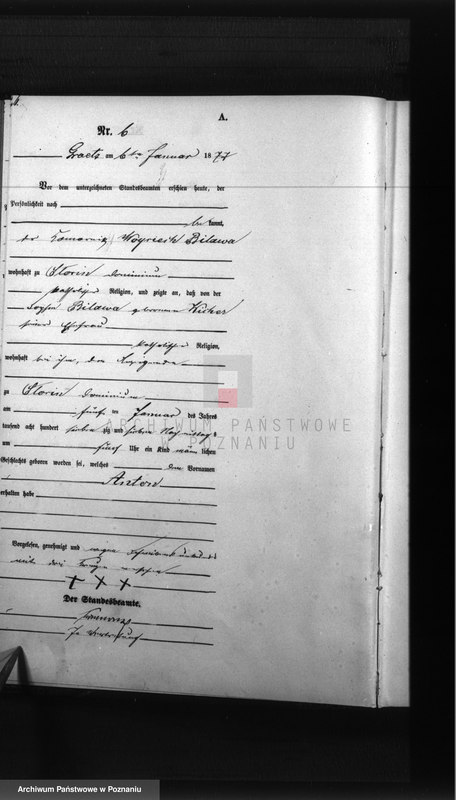 A.
Nr. 6
Graetz am 6ten Januar 1877
Vor dem unterzeichneten Standesbeamten erschien heute, der
Persönlichkeit nach
be kannt,
der Komornik Woyciech Bilawa
wohnhaft zu Dominium
katholischer Religion, und zeigte an, daß von der
Bilawa geborenen
seiner Ehefrau
katholischer Religion,
wohnhaft bei ihm, dem Anzeigenden
zu Dominium
am fünf ten Januar des Jahres
tausend acht hundert siebenzig und sieben Nachmittags
um fünf Uhr ein Kind männ lichen
Geschlechts geboren worden sei, welches den Vornamen
Anton
erhalten habe
Vorgelesen, genehmigt und wegen
mit drei Kreuzen
+ + +
Der Standesbeamte.
In Vertretung
ARCHIWUM PAŃSTWOWE
W POZNANIU
Archiwum Państwowe w Poznaniu